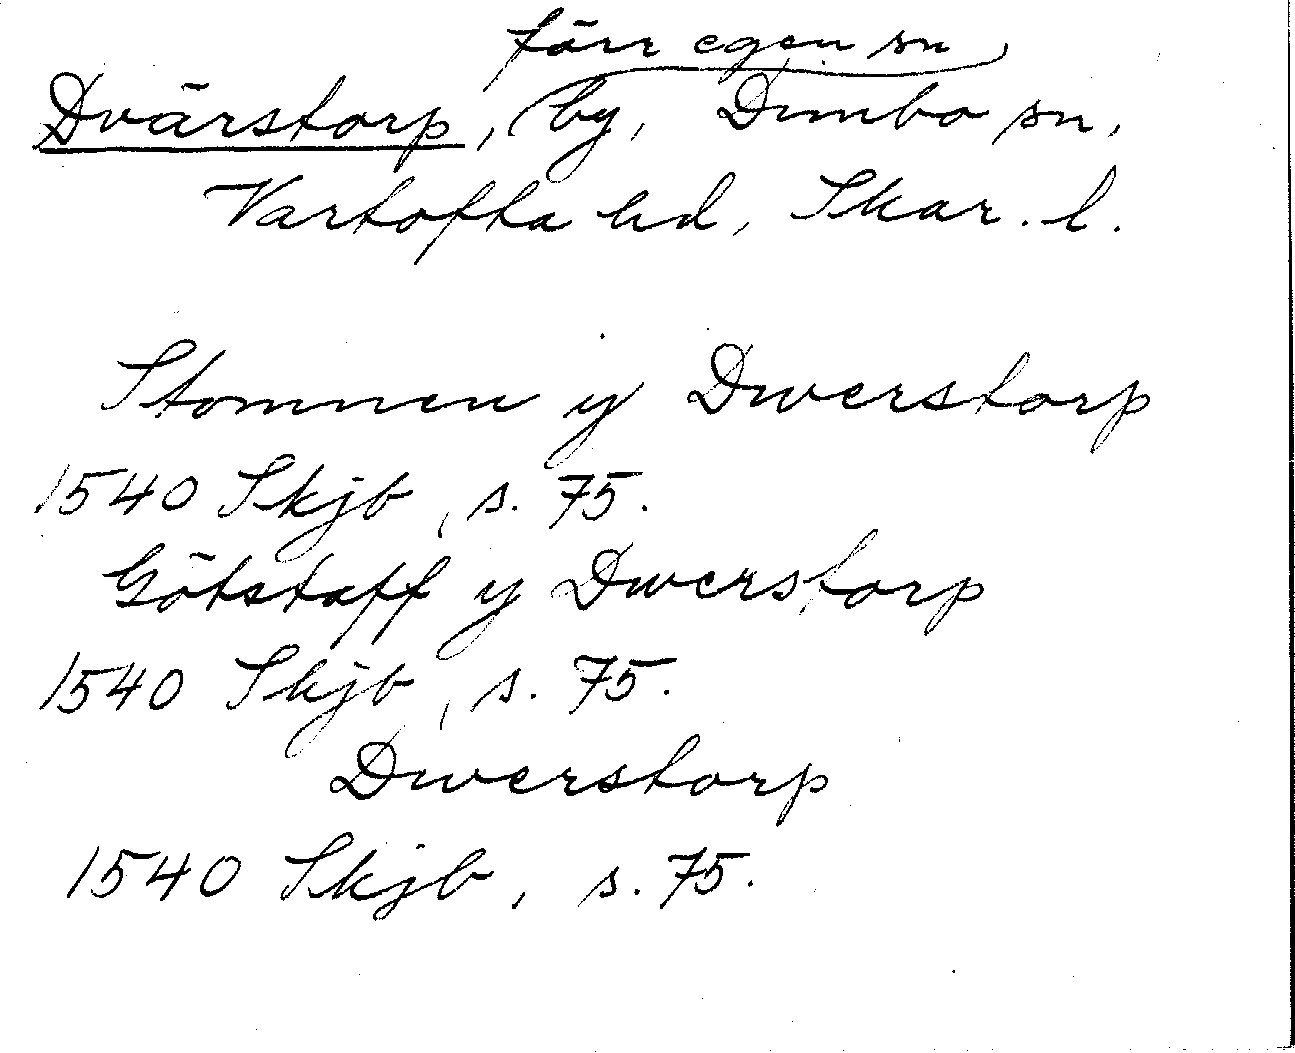 förr egen sn
Dvärstorp, (by, Dimbo sn,
Vartofta hd, Skar. l.
Stommen y Dwerstorp
1540 Skjb, s. 75.
Götstaff y Dwerstorp
1540 Skjb, s. 75.
Dwerstorp
1540 Skjb, s. 75.